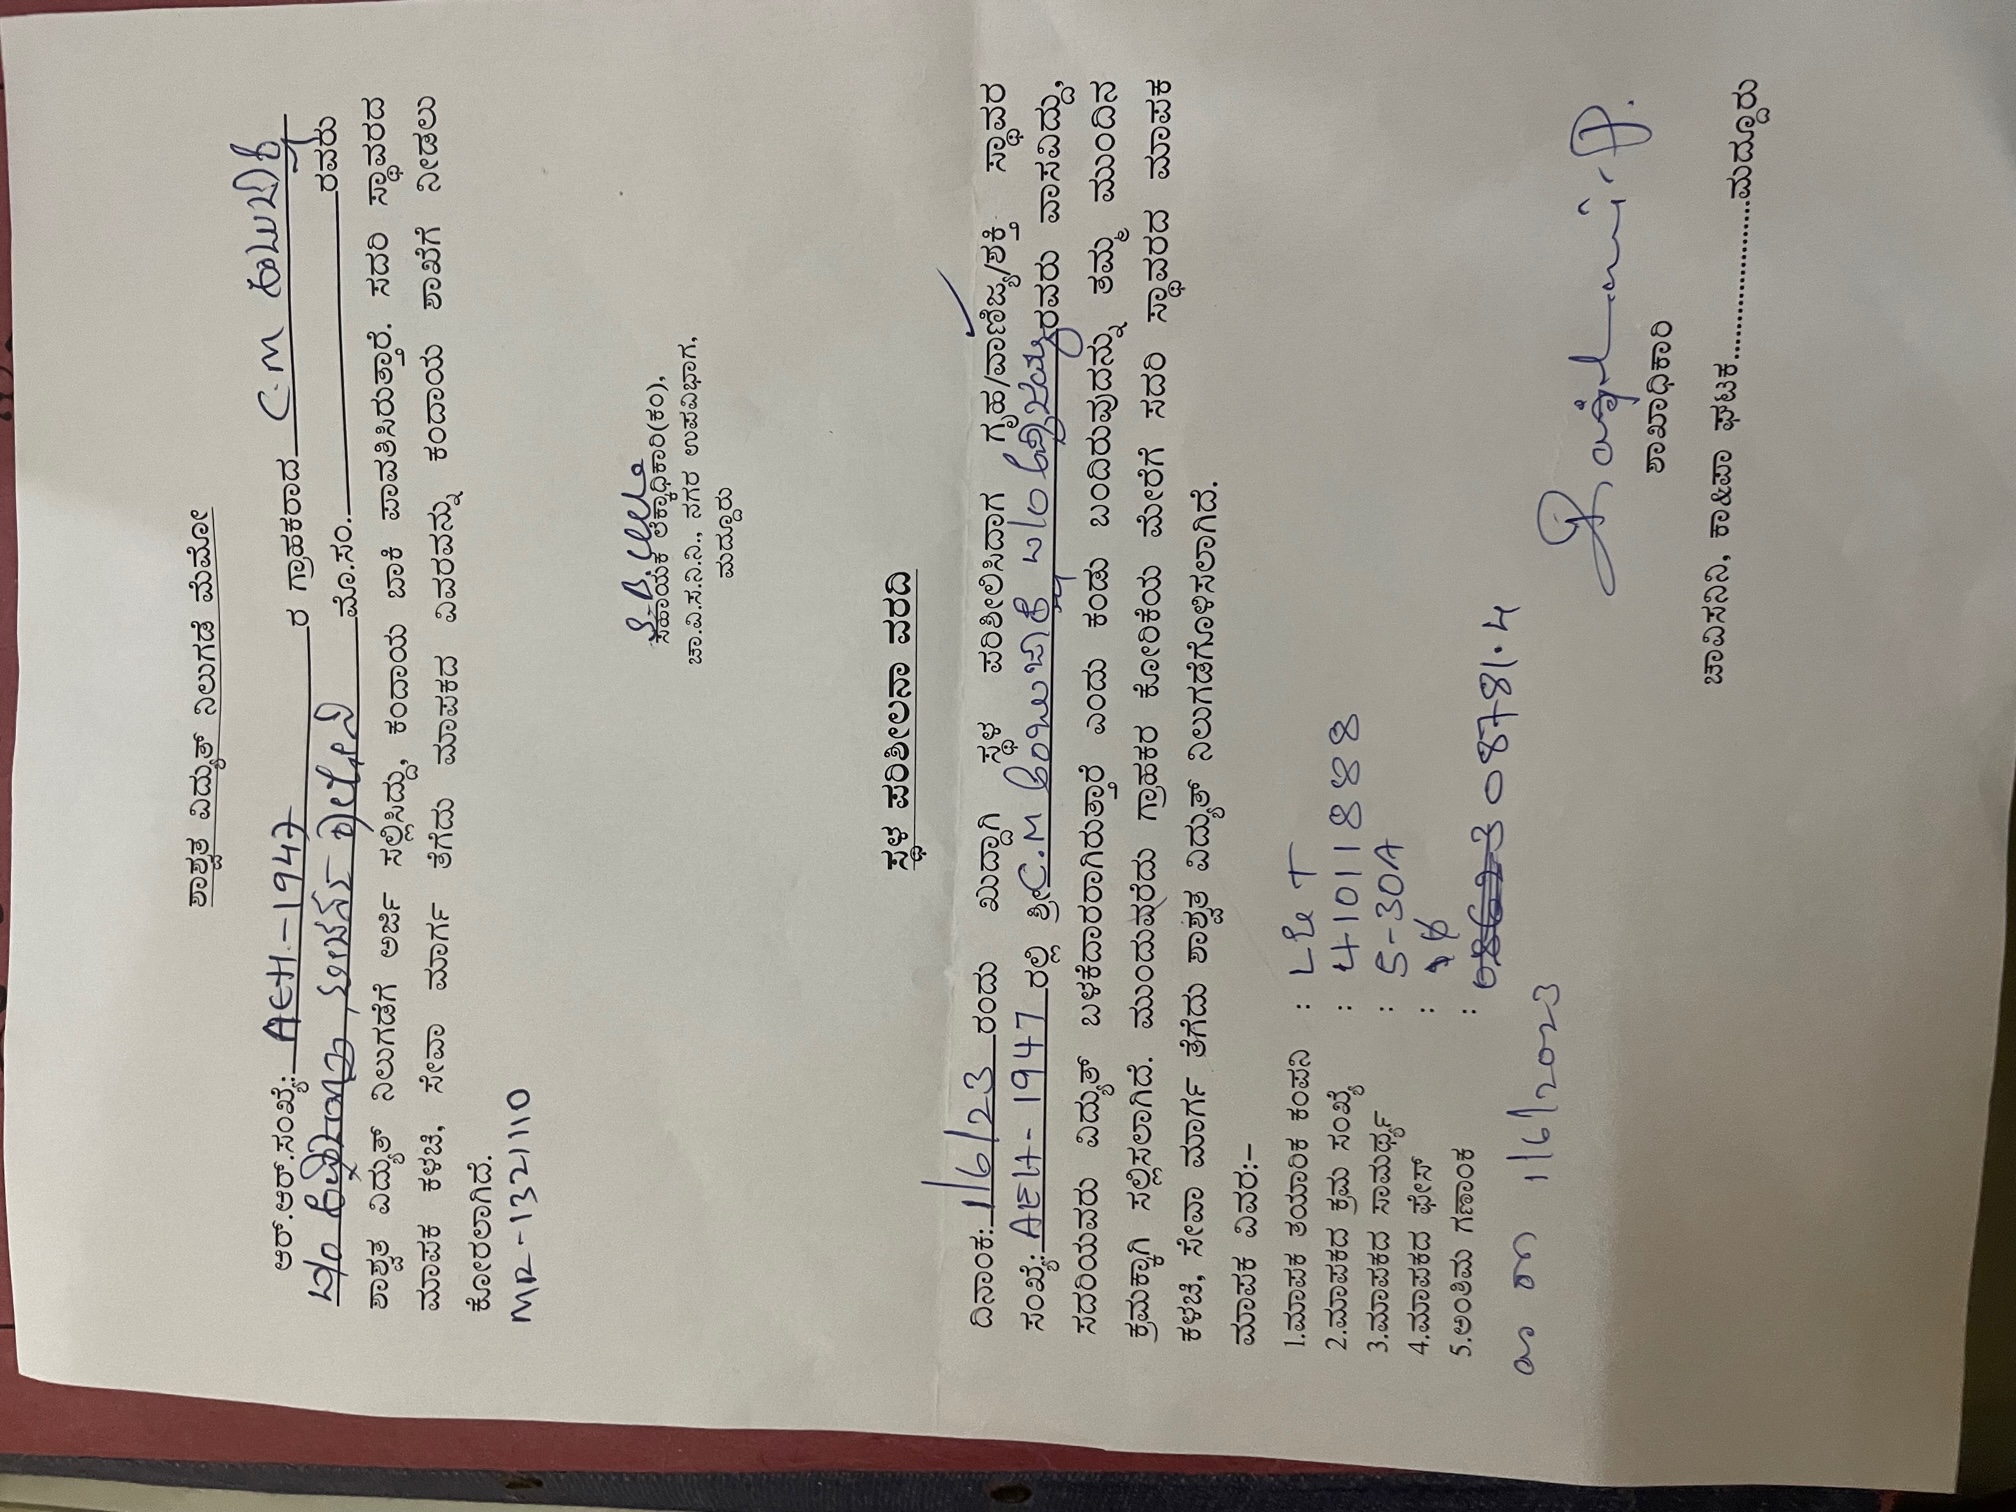 ಶಾಶ್ವತ ವಿದ್ಯುತ್ ನಿಲುಗಡೆ ಮೆಮೋ
ಆರ್.ಆರ್.ಸಂಖ್ಯೆ: AEH-1947 ರ ಗ್ರಾಹಕರಾದ C.M
ಮೊ.ಸಂ. ರವರು
ಶಾಶ್ವತ ವಿದ್ಯುತ್ ನಿಲುಗಡೆಗೆ ಅರ್ಜಿ ಸಲ್ಲಿಸಿದ್ದು, ಕಂದಾಯ ಬಾಕಿ ಪಾವತಿಸಿರುತ್ತಾರೆ. ಸದರಿ ಸ್ಥಾವರದ
ಮಾಪಕ ಕಳಚಿ, ಸೇವಾ ಮಾರ್ಗ ತೆಗೆದು ಮಾಪಕದ ವಿವರವನ್ನು ಕಂದಾಯ ಶಾಖೆಗೆ ನೀಡಲು
ಕೋರಲಾಗಿದೆ.
MR-1321110
ಸಹಾಯಕ ಲೆಕ್ಕಾಧಿಕಾರಿ(ಕಂ),
ಚಾ.ವಿ.ಸ.ನಿ.ನಿ., ನಗರ ಉಪವಿಭಾಗ,
ಮದ್ದೂರು
ಸ್ಥಳ ಪರಿಶೀಲನಾ ವರದಿ
ದಿನಾಂಕ: 1/6/23 ರಂದು ಖುದ್ದಾಗಿ ಸ್ಥಳ ಪರಿಶೀಲಿಸಿದಾಗ ಗೃಹ/ವಾಣಿಜ್ಯ/ಶಕ್ತಿ ಸ್ಥಾವರ
ಸಂಖ್ಯೆ: AEH-1947 ರಲ್ಲಿ ಶ್ರೀ C.M ರವರು ವಾಸವಿದ್ದು,
ಸದರಿಯವರು ವಿದ್ಯುತ್ ಬಳಕೆದಾರರಾಗಿರುತ್ತಾರೆ ಎಂದು ಕಂಡು ಬಂದಿರುವುದನ್ನು ತಮ್ಮ ಮುಂದಿನ
ಕ್ರಮಕ್ಕಾಗಿ ಸಲ್ಲಿಸಲಾಗಿದೆ. ಮುಂದುವರೆದು ಗ್ರಾಹಕರ ಕೋರಿಕೆಯ ಮೇರೆಗೆ ಸದರಿ ಸ್ಥಾವರದ ಮಾಪಕ
ಕಳಚಿ, ಸೇವಾ ಮಾರ್ಗ ತೆಗೆದು ಶಾಶ್ವತ ವಿದ್ಯುತ್ ನಿಲುಗಡೆಗೊಳಿಸಲಾಗಿದೆ.
ಮಾಪಕ ವಿವರ:-
1.ಮಾಪಕ ತಯಾರಿಕ ಕಂಪನಿ : L&T
2.ಮಾಪಕದ ಕ್ರಮ ಸಂಖ್ಯೆ : 41011888
3.ಮಾಪಕದ ಸಾಮರ್ಥ್ಯ : 5-30A
4.ಮಾಪಕದ ಫೇಸ್ :
5.ಅಂತಿಮ ಗಣಾಂಕ : 08781.4
as on 1/6/2023
ಶಾಖಾಧಿಕಾರಿ
ಚಾವಿಸನಿನಿ, ಕಾ&ಪಾ ಘಟಕ....................ಮದ್ದೂರು